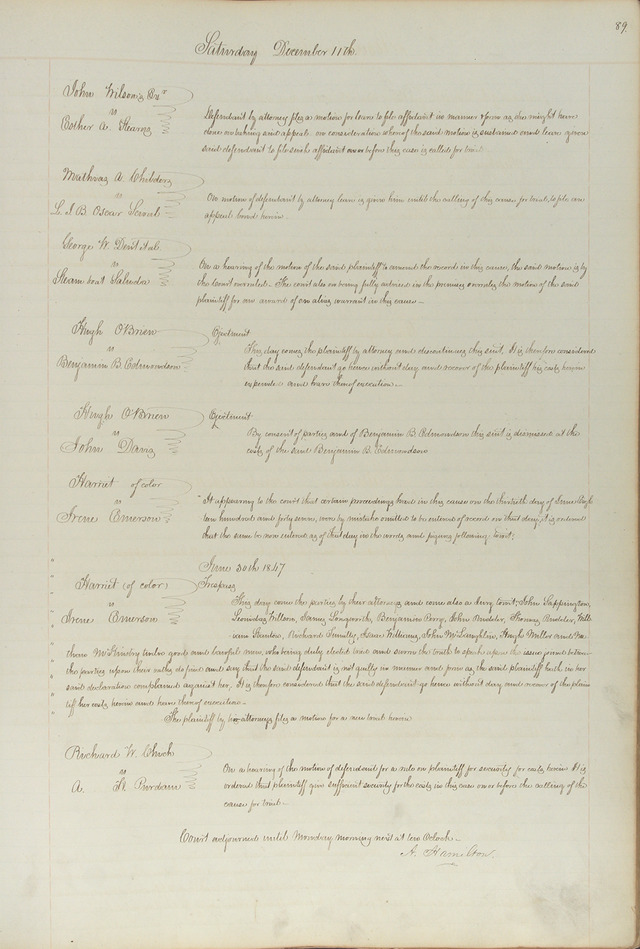 89.
Saturday December 11th
John Wilson's Exr
vs
Esther A. Stearns
Defendant by attorney files a motion for leave to file affidavit in manner & form as she might have
done on taking said appeal. on consideration whereof the said motion is sustained and leave given
said defendant to file such affidavit on or before this case is called for trial.
Mathias A Childers
vs
L. J. B. Oscar
On motion of defendant by attorney leave is given him until the calling of this cause for trial, to file an
appeal bond herein.
George W. Dent
vs
Steam boat Saluda
On a hearing of the motion of the said plaintiff to amend the records in this cause, the said motion is by
the Court overruled. The court also on being fully advised in the premises overrules the motion of the said
plaintiff for an award of an alias warrant in this cause.
Hugh O'Brien
vs
Benjamin B. Edmondson
Ejectment
This day comes the plaintiff by attorney and discontinues this suit. It is therefore considered
that the said defendant go hence without day and recover of the plaintiff his costs herein
expended and have thereof execution.
Hugh O'Brien
vs
John Davis
Ejectment
By consent of parties and of Benjamin B. Edmondson this suit is dismissed at the
costs of the said Benjamin B. Edmondson
Harriet of color
vs
Irene Emerson
It appearing to the court that certain proceedings had in this cause on the thirtieth day of June Eigh
teen hundred and forty seven, were by mistake omitted to be entered of record on that day, it is ordered
that the same be now entered as of that day in the words and figures following towit:
June 30th 1847
Harriet (of color)
vs
Irene Emerson
Trespass
This day come the parties by their attorneys and come also a Jury towit, John Sappington,
Willson, James Longworth, Benjamin Perry, John Butler, Thomas Butler, Will-
iam Reuben, Richard Small, Isaac Williams, John McLaughlin, Hugh Miller and Ma-
thew McKinley twelve good and lawful men, who being duly elected tried and sworn the truth to speak upon the issue joined between
the parties upon their oaths do find and say that the said defendant is not guilty in manner and form as the said plaintiff hath in her
said declaration complained against her. It is therefore considered that the said defendant go hence without day and recover of the plain
tiff her costs herein and have thereof execution.
The plaintiff by her attorneys files a motion for a new trial herein
Richard W. Chick
vs
A. H. Purdam
On a hearing of the motion of defendant for a rule on plaintiff for security for costs, herein It is
ordered that plaintiff give sufficient security for the costs in this case on or before the calling of the
cause for trial.
Court adjourned until Monday morning next at ten Oclock.
A. Hamilton